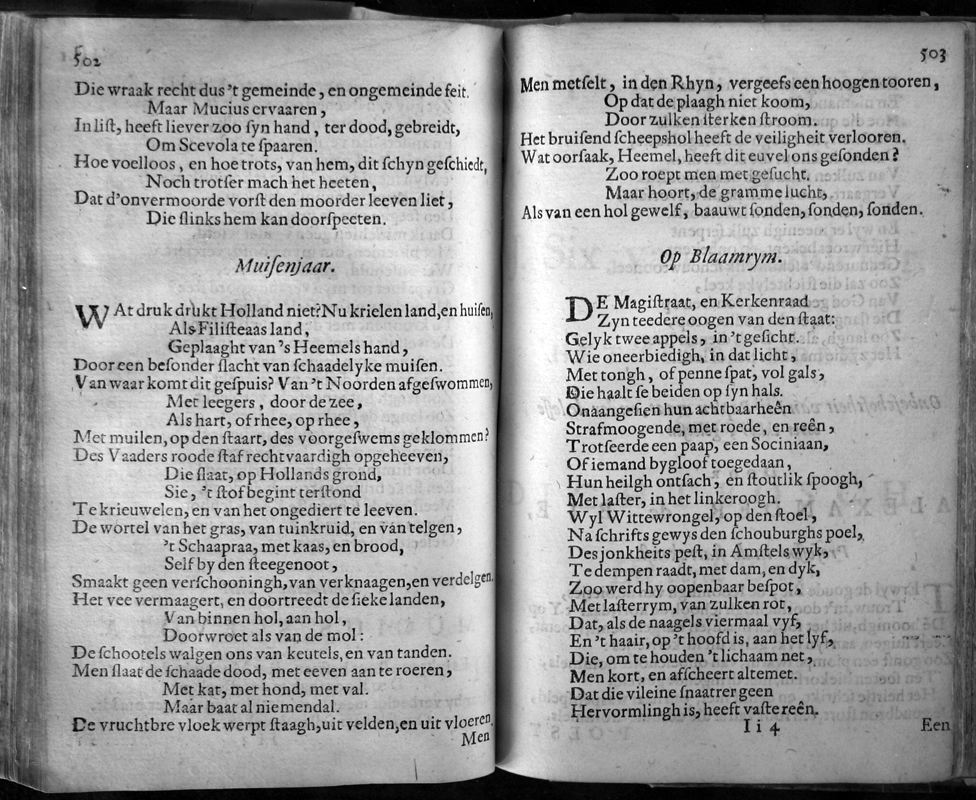 502
Die wraak recht dus 't gemeinde, en ongemeinde feit.
Maar Mucius ervaaren,
In liſt, heeft liever zoo ſyn hand, ter dood, gebreidt,
Om Scevola te ſpaaren.
Hoe voelloos, en hoe trots, van hem, dit ſchyn geſchiedt,
Noch trotſer mach het heeten,
Dat d'onvermoorde vorſt den moorder leeven liet,
Die ſlinks hem kan doorſpeeten.
Muiſenjaar.
WAt druk drukt Holland niet? Nu krielen land, en huiſen,
Als Filiſteaas land,
Geplaaght van 's Heemels hand,
Door een beſonder ſlacht van ſchaadelyke muiſen.
Van waar komt dit geſpuis? Van 't Noorden afgeſwommen,
Met leegers, door de zee,
Als hart, of rhee, op rhee,
Met muilen, op den ſtaart, des voorgeſwems geklommen?
Des Vaaders roode ſtaf rechtvaardigh opgeheeven,
Die ſlaat, op Hollands grond,
Sie, 't ſtof begint terſtond
Te krieuwelen, en van het ongediert te leeven.
De wortel van het gras, van tuinkruid, en van telgen,
't Schaapraa, met kaas, en brood,
Self by den ſteegenoot,
Smaakt geen verſchooningh, van verknaagen, en verdelgen.
Het vee vermaagert, en doortreedt de ſieke landen,
Van binnen hol, aan hol,
Doorwroet als van de mol:
De ſchootels walgen ons van keutels, en van tanden.
Men ſlaat de ſchaade dood, met eeven aan te roeren,
Met kat, met hond, met val.
Maar baat al niemendal.
De vruchtbre vloek werpt ſtaagh, uit velden, en uit vloeren,
Men
503
Men metſelt, in den Rhyn, vergeefs een hoogen tooren,
Op dat de plaagh niet koom,
Door zulken ſterken ſtroom.
Het bruiſend ſcheepshol heeft de veiligheit verlooren.
Wat oorſaak, Heemel, heeft dit euvel ons geſonden?
Zoo roept men met geſucht.
Maar hoort, de gramme lucht,
Als van een hol gewelf, baauwt ſonden, ſonden, ſonden.
Op Blaamrym.
DE Magiſtraat, en Kerkenraad
Zyn teedere oogen van den ſtaat:
Gelyk twee appels, in 't geſicht.
Wie oneerbiedigh, in dat licht,
Met tongh, of penne ſpat, vol gals,
Die haalt ſe beiden op ſyn hals.
Onaangeſien hun achtbaarheên
Strafmoogende, met roede, en reên,
Trotſeerde een paap, een Sociniaan,
Of iemand bygloof toegedaan,
Hun heiligh ontſach, en ſtoutlik ſpoogh,
Met laſter, in het linkeroogh.
Wyl Wittewrongel, op den ſtoel,
Na ſchrifts gewys den ſchouburghs poel,
Des jonkheits peſt, in Amſtels wyk,
Te dempen raadt, met dam, en dyk,
Zoo werd hy oopenbaar beſpot,
Met laſterrym, van zulken rot,
Dat, als de naagels viermaal vyf,
En 't haair, op 't hoofd is, aan het lyf,
Die, om te houden 't lichaam net,
Men kort, en afſcheert altemet.
Dat die vileine ſnaatrer geen
Hervormlingh is, heeft vaſte reên.
Ii 4
Een